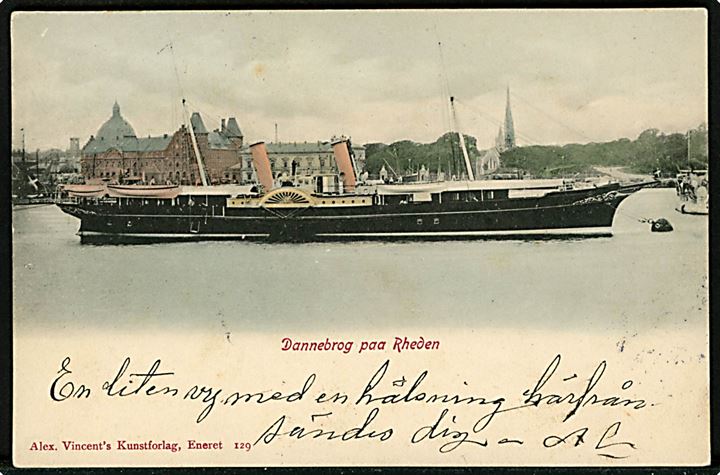 Dannebrog paa Rheden
En liten vy med en hälsning härifrån
sändes dig – AL
Alex. Vincent's Kunstforlag, Eneret 129